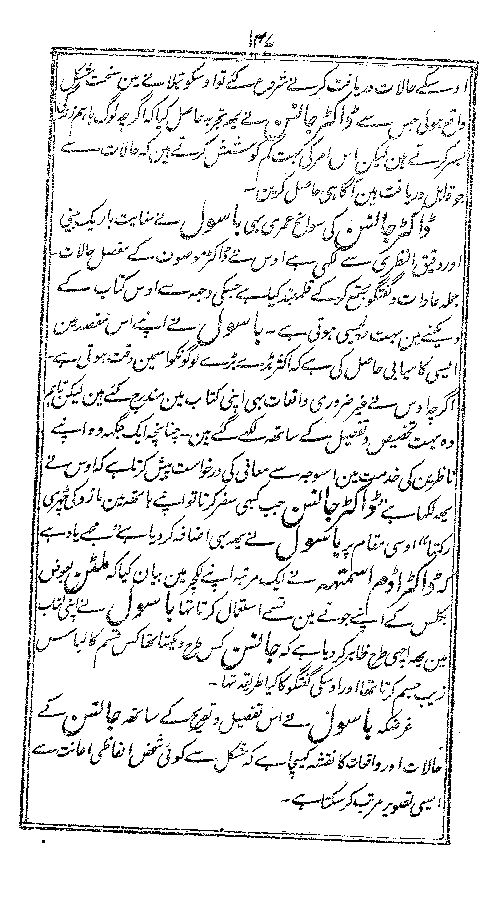 ۱۳۷
اوسکے حالات دریافت کرنے شروع کئے تو اوسکو بتلانے مین سخت مشکل
واقع ہوئی جس سے ڈاکٹر جانسن نے یہہ تجربہ حاصل کیا کہ اگرچہ لوگ باہم زندگی
بسر کرتے ہین لیکن اس امر کی بہت کم کوشش کرتے ہین کہ حالات سے
جو قابل دریافت ہین آگاہی حاصل کرین۔
ڈاکٹر جانسن کی سوانح عمری بھی باسول نے نہایت باریک بینی
اور دقیق النظری سے لکھی ہے اوس نے ڈاکٹر موصوف کے مفصل حالات۔
جملہ عادات و گفتگو جمع کرکے قلمبند کیا ہے جسکی وجہ سے اوس کتاب کے
دیکھنے مین بہت دلچسپی ہوتی ہے۔ باسول نے اپنے اس مقصد مین
ایسی کامیابی حاصل کی ہے کہ اکثر بڑے بڑے لوگونکو اسمین دقت ہوتی ہے۔
اگرچہ اوس نے غیر ضروری واقعات بھی اپنی کتاب مین مندرج کئے ہین لیکن تاہم
وہ بہت تخصیص و تفصیل کے ساتھ لکھے گئے ہین۔ چنانچہ ایک جگہ وہ اپنے
ناظرین کی خدمت مین اسوجہ سے معافی کی درخواست پیش کرتا ہے کہ اوس نے
یہہ لکھا ہے "ڈاکٹر جانسن جب کبھی سفر کرتا تو اپنے ہاتھ مین بازو کی چھڑی
رکھتا" اوسی مقام پر باسول نے یہہ بھی اضافہ کر دیا ہے "مجھے یاد ہے
کہ ڈاکٹر اڈم اسمتھ نے ایک مرتبہ اپنے لکچر مین بیان کیا کہ ملٹن بعوض
بکلس کے اپنے جوتے مین تسمے استعمال کرتا تھا باسول نے اپنی کتاب
مین یہہ اچھی طرح ظاہر کر دیا ہے کہ جانسن کس طرح دیکھتا تھا کس قسم کا لباس
زیب جسم کرتا تھا اور اوسکی گفتگو کا کیا طریقہ تھا۔
غرضکہ باسول نے اس تفصیل و توضیح کے ساتھ جانسن کے
حالات اور واقعات کا نقشہ کھینچا ہے کہ مشکل سے کوئی شخص الفاظ کی اعانت سے
ایسی تصویر مرتب کر سکتا ہے۔